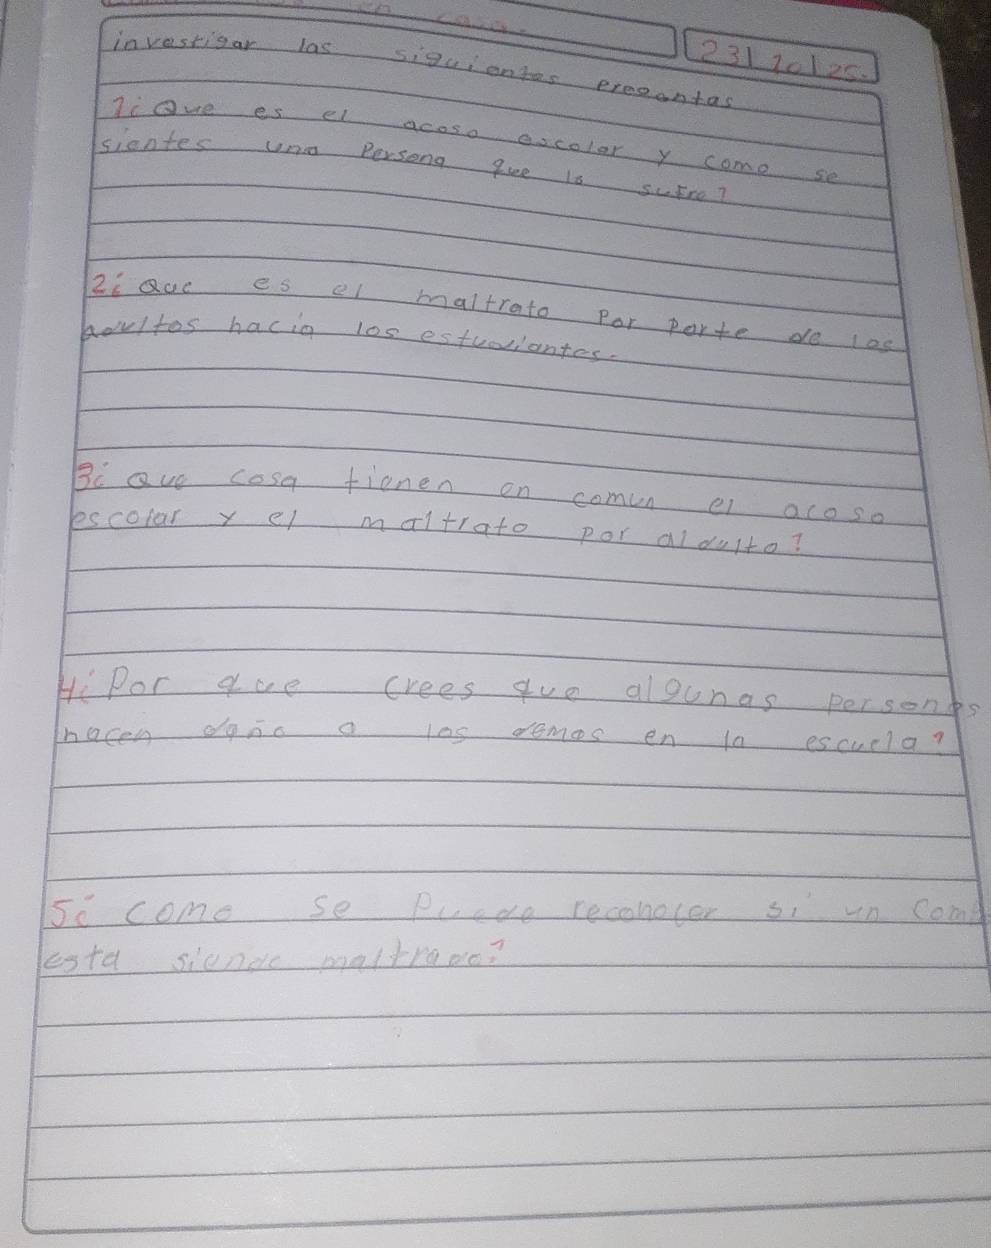 en casa.
23/10/25.
investigar las siguientes pregontas
1¿Que es el acoso escolar y como se
sientes una Persona que lo sufre?
2¿Que es el maltrato Por Parte de los
adultos hacia los estudiantes.
3¿Que cosa tienen en comun el acoso
escolar y el maltrato por aldulto?
4¿Por que crees que algunas personas
hacen daño a los demas en la escuela?
5¿como se Puede reconocer si un com
esta siendo maltrado?